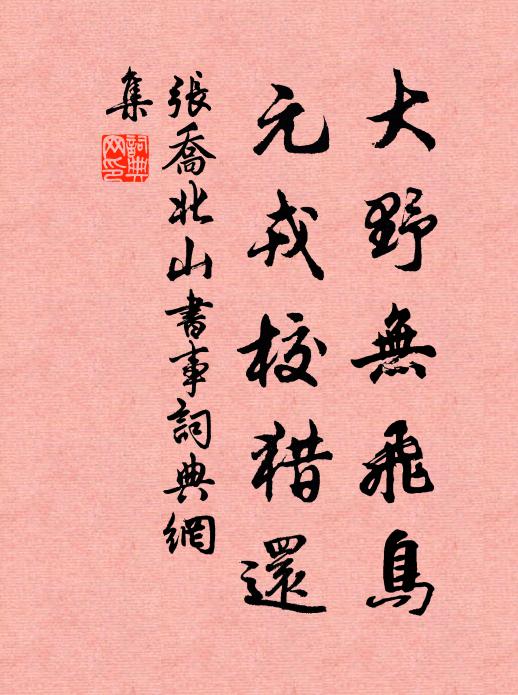 大野無飛鳥
元戎校猎還
張喬北山書事詞典網
集
詞典
网印